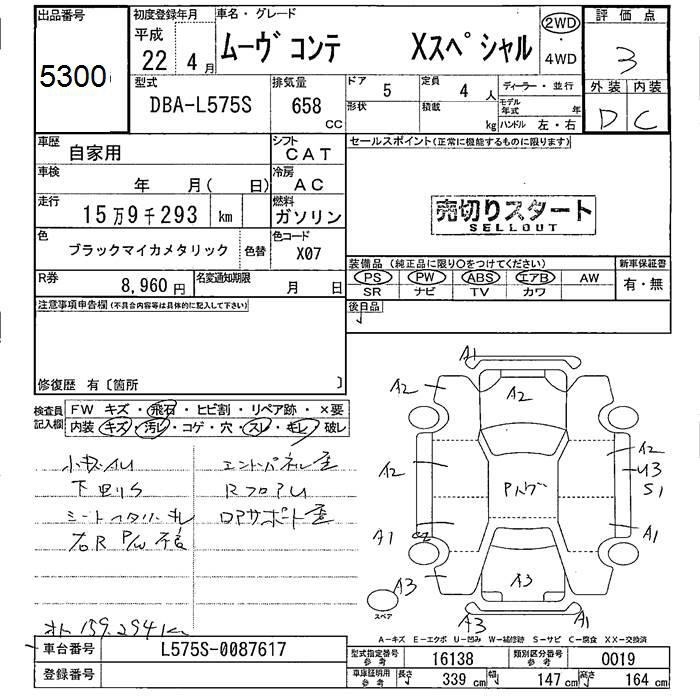 出品番号
5300
初度登録年月
平成
22年 4月
車名・グレード
ムーヴ コンテ Xスペシャル
2WD
・
4WD
評価点
3
外装 内装
D C
型式
DBA-L575S
排気量
658
CC
ドア
5
定員
4 人
形状
積載
kg
ディーラー・並行
モデル年式 年
ハンドル 左・右
車歴
自家用
シフト
CAT
車検
年 月( 日)
冷房
AC
走行
15万9千293 km
燃料
ガソリン
色
ブラックマイカメタリック
色替
色コード
X07
R券
8,960円
名変通知期限
月 日
セールスポイント(正常に機能するものに限ります)
売切りスタート
SELLOUT
装備品(純正品に限り○をつけてください)
PS PW ABS エアB AW
SR ナビ TV カワ
新車保証書
有・無
後日品
注意事項申告欄(不具合内容等は具体的に記入して下さい)
修復歴 有〔箇所 〕
検査員
記入欄
FW キズ・飛石・ヒビ割・リペア跡・×要
内装 キズ・汚レ・コゲ・穴・スレ・キレ・破レ
下廻りS
右R P/W 不良
RフロアU
159.294km
A1
A2
A2
A2
A2
U3
S1
Pスグ
A1
A1
A3
A3
A3
A1
スペア
A-キズ E-エクボ U-凹み W-補修跡 S-サビ C-腐食 XX-交換済
車台番号
L575S-0087617
登録番号
型式指定番号
参考
16138
類別区分番号
参考
0019
車庫証明用
参考
長さ 339 cm
幅 147 cm
高さ 164 cm